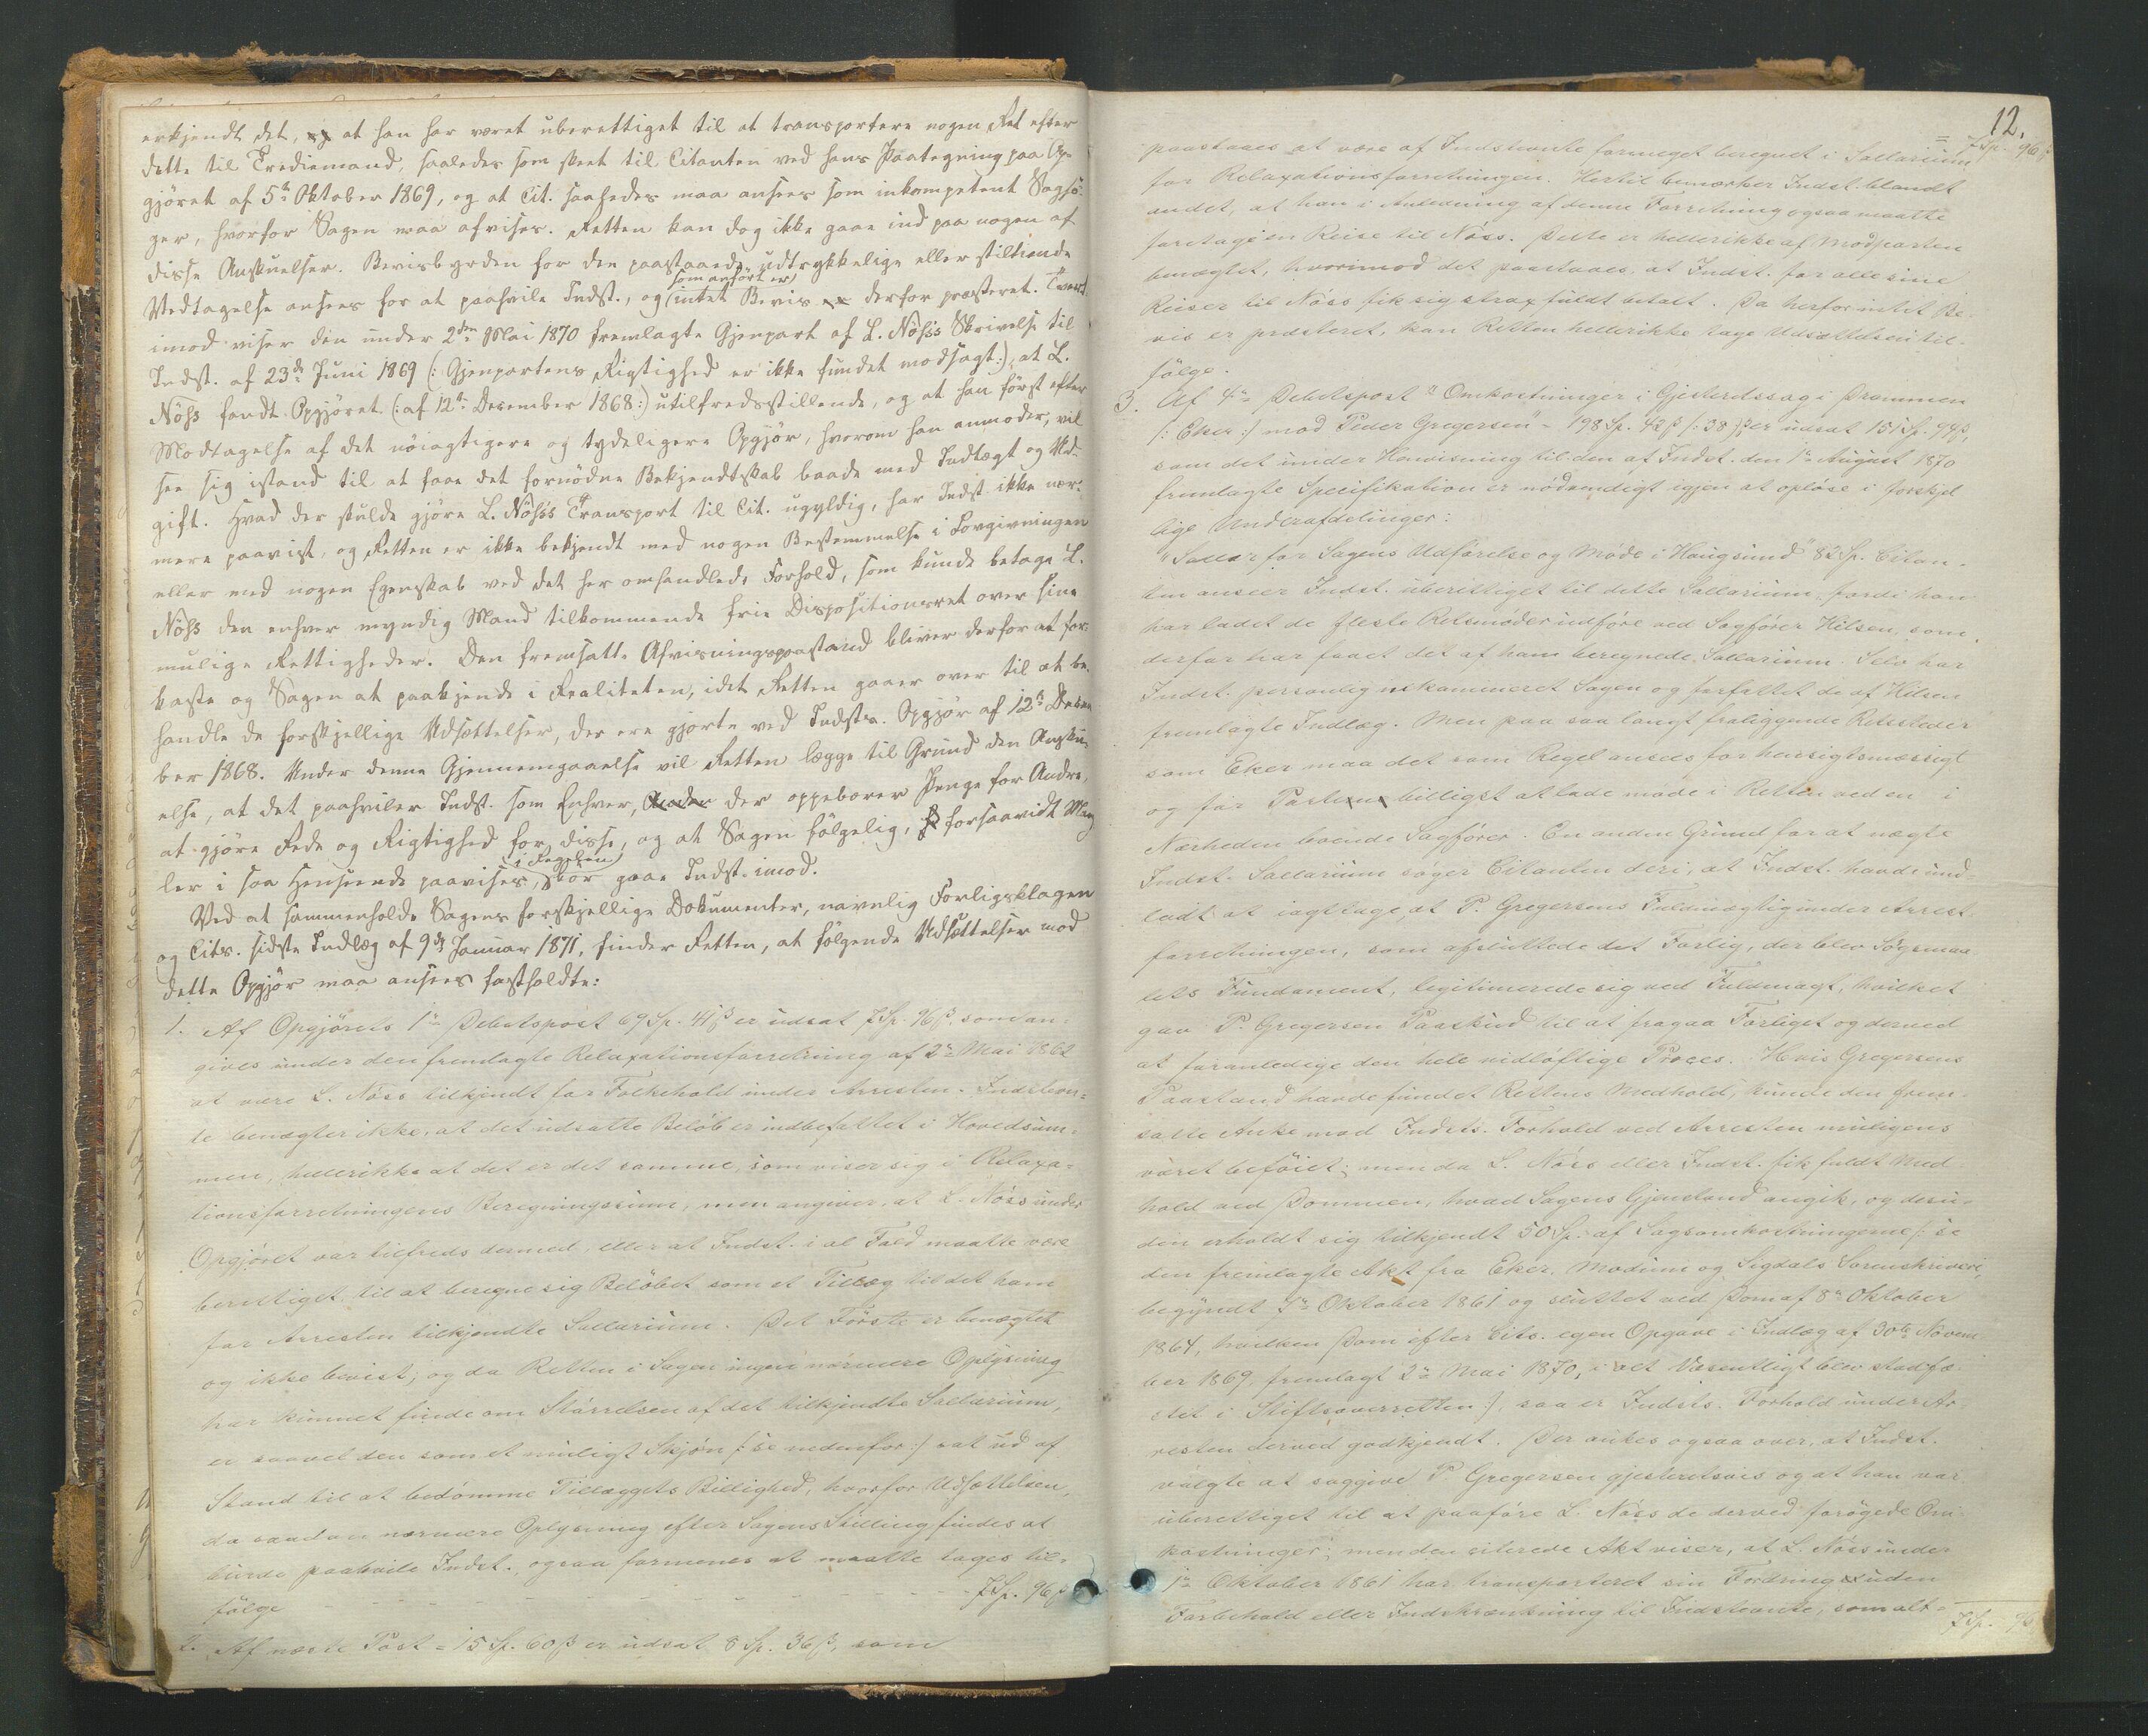 erkjendt det, at han har været uberettiget til at transportere nogen Ret efter
dette til Trediemand, saaledes som skeet til Citanten ved hans Paategning paa Op-
gjöret af 5te Oktober 1869, og at Cit. saaledes maa ansees som inkompetent Sagsö-
ger, hvorfor Sagen maa afvises. Retten kan dog ikke gaae ind paa nogen af
disse Anskuelser. Bevisbyrden for den paastaaede udtrykkelige eller stiltiende
som anfört er
Vedtagelse ansees for at paahvile Indst., og intet Bevis derfor præsteret. Tvert-
imod viser den under 2den Mai 1870 fremlagte Gjenpart af L. Nöss's Skrivelse til
Indst. af 23de Juni 1869 (: Gjenpartens Rigtighed er ikke fundet modsagt:), at L.
Nöss fandt Opgjöret (: af 12te December 1868:) utilfredsstillende, og at han först efter
Modtagelse af det nöiagtigere og tydeligere Opgjör, hvorom han anmoder, vil
see sig istand til at faae det fornödne Bekjendtskab baade med Indtægt og Ud-
gift. Hvad der skulde gjöre L. Nöss's Transport til Cit. ugyldig, har Indst. ikke nær-
mere paavist, og Retten er ikke bekjendt med nogen Bestemmelse i Lovgivningen
eller med nogen Egenskab ved det her omhandlede Forhold, som kunde betage L.
Nöss den enhver myndig Mand tilkommende frie Dispositionsret over sine
mulige Rettigheder. Den fremsatte Afvisningspaastand bliver derfor at for-
kaste og Sagen at paakjende i Realiteten, idet Retten gaaer over til at be-
handle de forskjellige Udsættelser, der ere gjorte ved Indsts. Opgjör af 12te Decem
ber 1868. Under denne Gjennemgaaelse vil Retten lægge til Grund den Ansku-
else, at det paahviler Indst. som Enhver, der oppeborer Penge for Andre,
at gjöre Rede og Rigtighed for disse, og at Sagen fölgelig, forsaavidt Mang
i Regelen
ler i saa Henseende paavises, bör gaae Indst. imod.
Ved at sammenholde Sagens forskjellige Dokumenter, navnlig Forligsklagen
og Cits. sidste Indlæg af 9de Januar 1871, finder Retten, at fölgende Udsættelser mod
dette Opgjör maa ansees fastholdte:
1. Af Opgjörets 1ste Debetspost 69 Sp. 41 β er udsat 7 Sp. 96 β, som an-
gives under den fremlagte Relaxationsforretning af 2den Mai 1862
at være L. Nöss tilkjendt for Folkehold under Arresten. Indstevn-
te benægter ikke, at det udsatte Belöb er indbefattet i Hovedsum-
men, hellerikke at det er det samme, som viser sig i Relaxa-
tionsforretningens Beregningssum, men angiver, at L. Nöss under
Opgjöret var tilfreds dermed, eller at Indst. i al Fald maatte være
berettiget til at beregne sig Belöbet som et Tillæg til det ham
for Arresten tilkjendte Sallarium. Det Förste er benægtet
og ikke bevist; og da Retten i Sagen ingen nærmere Oplysning
har kunnet finde om Störrelsen af det tilkjendte Sallarium,
er saavel den som et muligt Skjön (: se nedenfor :) sat ud af
Stand til at bedömme Tillæggets Billighed, hvorfor Udsættelsen,
da saadan nærmere Oplysning efter Sagens Stilling findes at
burde paahvile Indst., ogsaa formenes at maatte tages til-
fölge - - - - - - - - - 7 Sp. 96 β
2. Af næste Post = 15 Sp. 60 β er udsat 8 Sp. 36 β, som
12.
= 7 Sp. 96 β
paastaaes at være af Indstevnte formeget beregnet i Sallarium
for Relaxationsforretningen. Hertil bemærker Indst. blandt
andet, at han i Anledning af denne Forretning ogsaa maatte
foretage en Reise til Nöss. Dette er hellerikke af Modparten
benægtet, hvorimod det paastaaes, at Indst. for alle sine
Reiser til Nöss fik sig strax fuldt betalt. Da herfor intet Be-
vis er præsteret, kan Retten hellerikke tage Udsættelsen til-
fölge.
3. Af 4de Debetspost "Omkostninger i Gjesteretssag i Drammen
(: Eker :) mod Peder Gregersen" = 198 Sp. 42 β (: 38 :) er udsat 151 Sp. 94 β,
som det under Henvisning til den af Indst. den 1ste August 1870
fremlagte Specifikation er nödvendigt igjen at oplöse i forskjel
lige Underafdelinger:
"Sallar for Sagens Udförelse og Möde i Haugsund" 82 Sp. Citan-
ten anseer Indst. uberettiget til dette Sallarium, fordi han
har ladet de fleste Retsmöder udföre ved Sagförer Hilsen, som
derfor har faaet det af ham beregnede Sallarium. Selv har
Indst. personlig inkammineret Sagen og forfattet de af Hilsen
fremlagte Indlæg. Men paa saa langt fraliggende Retssteder
som Eker maa det som Regel ansees for hensigtsmæssigt
og for Parten billigst at lade möde i Retten ved en i
Nærheden boende Sagförer. En anden Grund for at nægte
Indst. Sallarium söger Citanten deri, at Indst. havde und-
ladt at iagttage, at P. Gregersens Fuldmægtig under Arrest-
forretningen, som afsluttede det Forlig, der blev Sögsmaa-
lets Fundament, legitimerede sig ved Fuldmagt, hvilket
gav P. Gregersen Paaskud til at fragaa Forliget og derved
at foranledige den hele vidlöftige Proces. Hvis Gregersens
Paastand havde fundet Rettens Medhold, kunde den frem-
satte Anke mod Indsts. Forhold ved Arresten muligens
været beföiet; men da L. Nöss eller Indst. fik fuldt Med
hold ved Dommen, hvad Sagens Gjenstand angik, og desu-
den erholdt sig tilkjendt 50 Sp. af Sagsomkostningerne (: se
den fremlagte Akt fra Eker, Modum og Sigdals Sorenskriveri,
begyndt 7de Oktober 1861 og sluttet ved Dom af 8de Oktober
1864, hvilken Dom efter Cits. egen Opgave i Indlæg af 30te Novem
ber 1869, fremlagt 2den Mai 1870, i alt Væsentligt blev stadfæ-
stet i Stiftsoverretten :), saa er Indsts. Forhold under Ar-
resten derved godkjendt. Der ankes ogsaa over, at Indst.
valgte at saggive P. Gregersen gjesteretsvis og at han var
uberettiget til at paaföre L. Nöss de derved forögede Om-
kostninger; men den citerede Akt viser, at L. Nöss under
1ste Oktober 1861 har transporteret sin Fordring uden
Forbehold eller Indskrænkning til Indstevnte, som alt-
7 Sp. 96